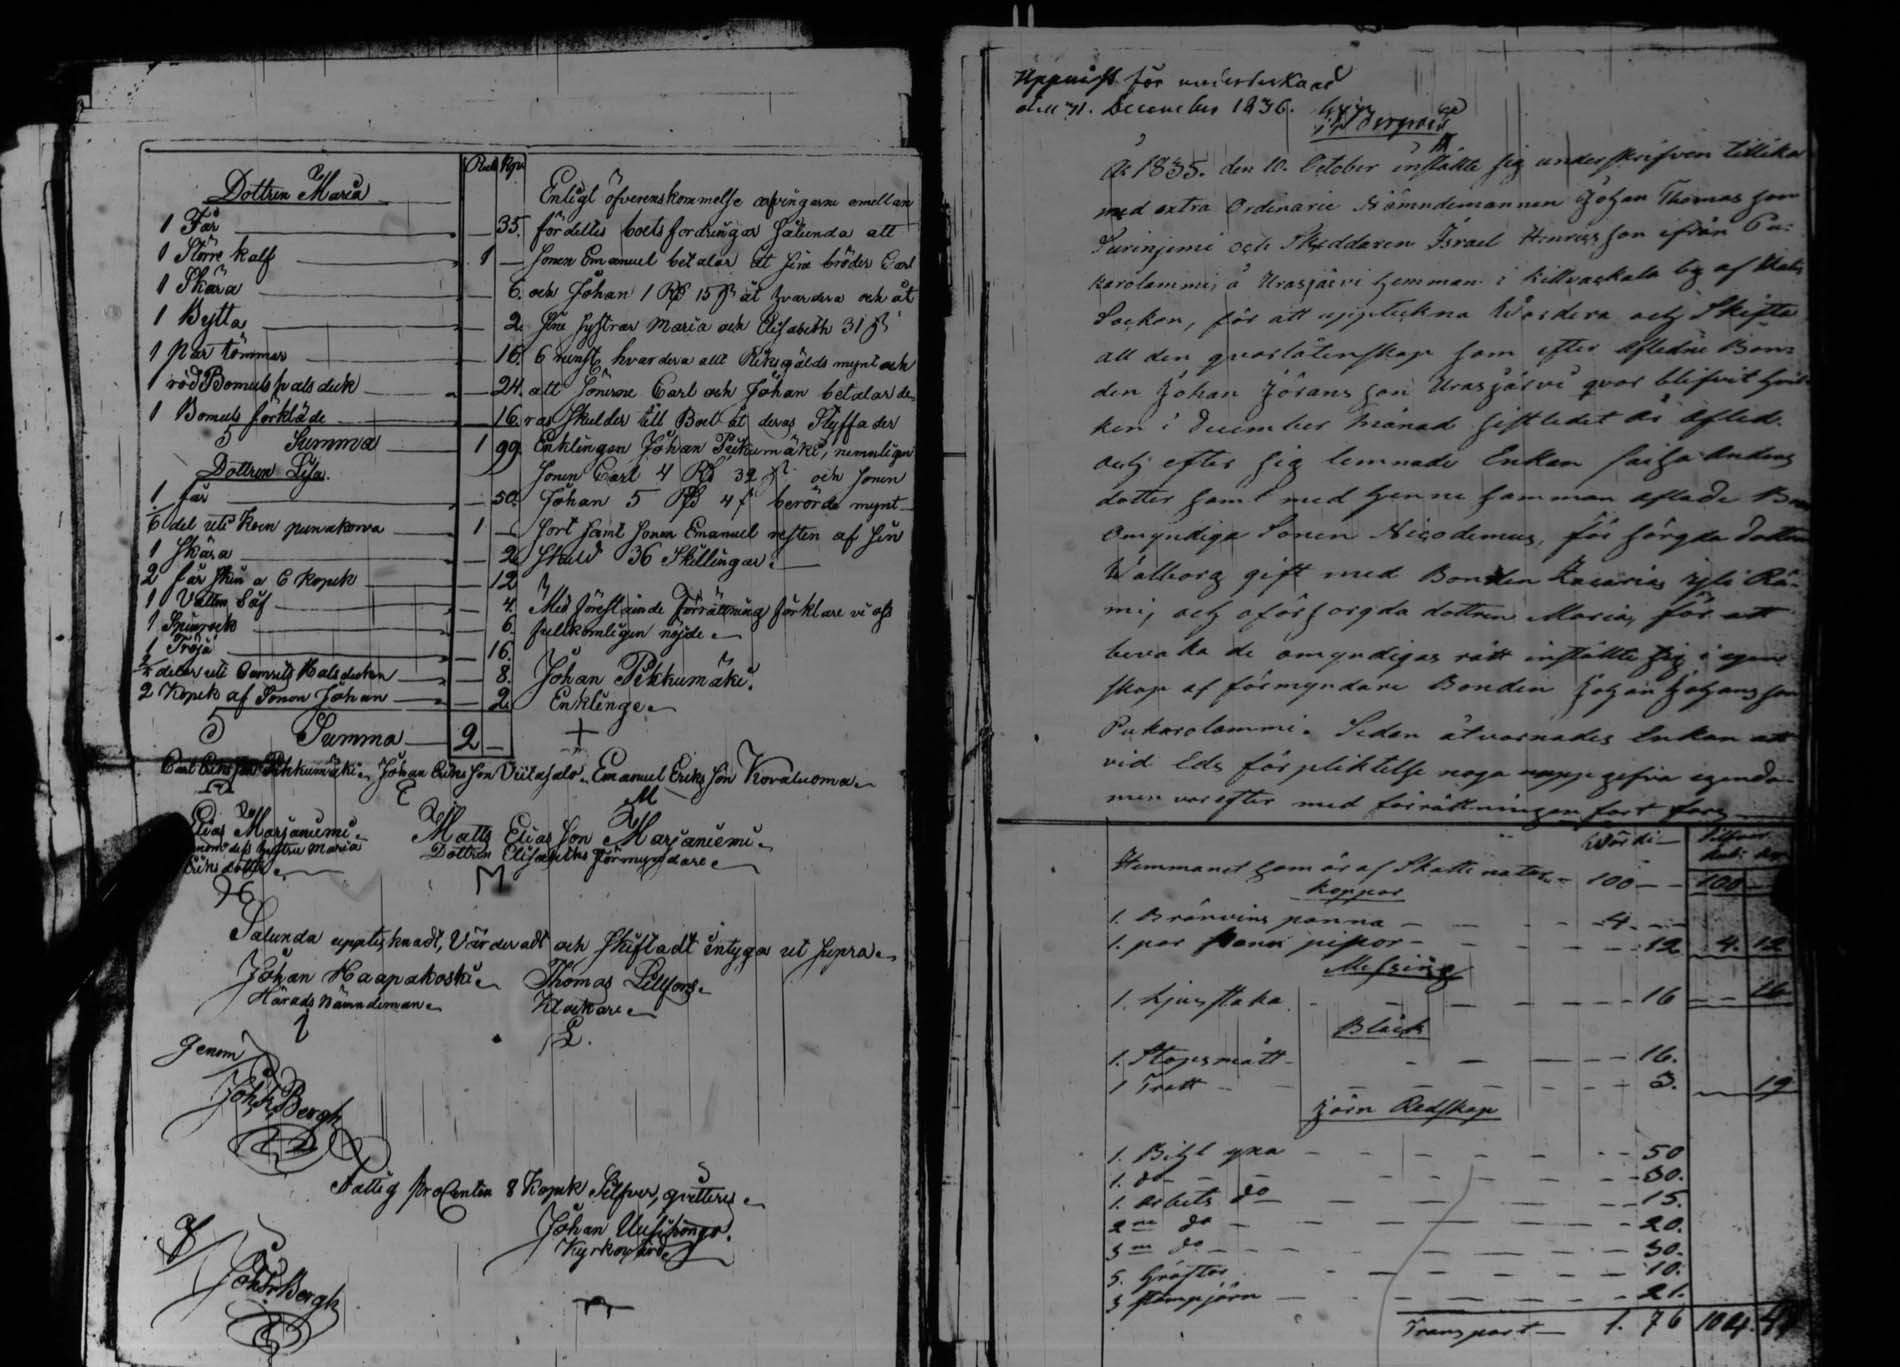 Rub Kop
Dottren Maria
1 Får — 35.
1 Större kalf — 1 —
1 Skära — 6.
1 Bytta — 2.
1 par tömmar — 16.
1 röd Bomuls halsduk — 24.
1 Bomuls förkläde — 16.
Summa — 1 99.
Dottren Lisa.
1 får — 50.
1/6 del uti Koen punakorva — 1 —
1 skära — 2.
2 får skin a 6 kopek — 12
1 Vatten Såf — 4.
1 Spinrock — 6.
1 Tröja — 16.
delar uti Halsduken — 8.
2 Kopek af Sonen Johan — 2.
Summa — 2 —
Enligt öfverenskommelse arfvingarne emellan
fördeltes boets fordringar sålunda att
Sonen Emanuel betalar åt sine bröder Carl
och Johan 1 Rd 15 s åt hvardera och åt
sine systrar Maria och Elisabeth 31 s
6 runst hvardera allt Riksgälds mynt och
att Sönerne Carl och Johan betalar de-
ras skulder till Boet åt deras Styffader
Enklingen Johan Pekkumäki, nemligen
Sonen Carl 4 Rd 32 s och sonen
Johan 5 Rd 4 s berörde mynt
sort samt sonen Emanuel resten af sin
skuld 36 Skillingar.
Med föreståinde förrättning förklare vi oss
fullkomligen nöjde.
Johan Pekkumäki.
Enklinge.
+
Carl Eriksson Pekkumäki. Johan Eriksson Viitasalo. Emanuel Eriksson Koraluoma.
Elias Marjaniemi.
genom dess hustru Maria
Eriksdotter.
Matts Eliasson Marjaniemi.
Dottren Elisabeths förmyndare.
M
Salunda upptecknadt, Värderadt och Skiftadt intyga ut supra.
Johan Haapakoski.
Härads Nämndeman.
Thomas Lillfors.
Klockare.
genom
Joh: Bergh
Fattig proCenten 8 Kopek Silfver, qvitteres.
Johan Uusihongo.
Kyrkovärd.
Joh: Bergh
Uppvist för underteknad
den 31. December 1836.
År 1835. den 10. October instälte sig underskrifven tillika
med extra Ordinarie Nämndemannen Johan Thomasson
Turinjemi och Skräddaren Israel Henricsson ifrån Pu-
karolammi, å Urasjärvi hemman i Killvackala by af
Socken, för att upptekna Värdera och Skifta
all den qvarlåtenskap som efter afledne Bon-
den Johan Jöransson Urasjärvi qvar blifvit hvil-
ken i December Månad sistledet år afled.
och efter sig lemnade Enkan Caisa Anders
dotter samt med henne samman aflade Barn
Omyndiga Sonen Nicodemus, för sörgda dottren
Walborg gift med Bonden Zacarias yli Rä-
mi, och oförsorgda dottren Maria, för att
bevaka de omyndigas rätt instälte sig i egen-
skap af förmyndare Bonden Johan Johansson
Pukarolammi. Sedan åtvarnades Enkan att
vid Eds förpliktelse noga uppgefva egendo-
men varefter med förrättningen fort fors
Värdi — Silfver
Hemmanet som är af Skatte natur — 100 — 100 —
Koppar
1. Bränvins panna — 4. —
1. par panne pipor — 12 4. 12
Messing
1. Ljusstaka — 16 — 16
Bläck
1. Stopsmått — 16.
1 Tratt — 3. — 19
Järn Redskap
1. Bihl yxa — 50
1. do — 30.
1. arbets do — 15.
2ne do — 20.
3ne do — 30.
5. Gräftor — 10.
3 Stämpjärn — 21.
Transport — 1. 76 104. 47